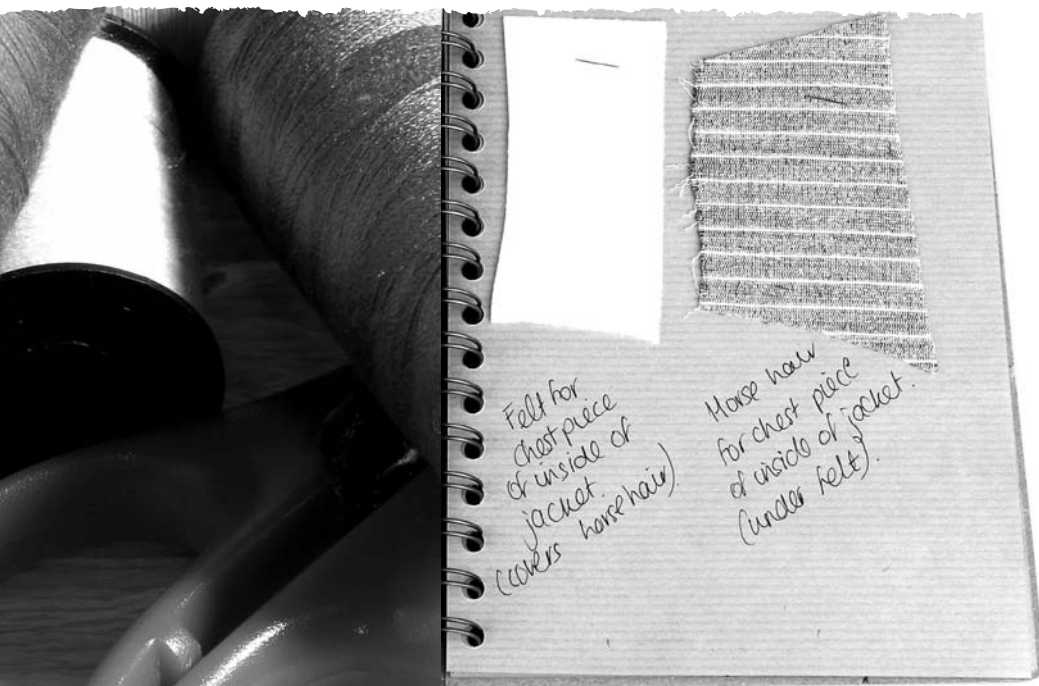 Felt for
chest piece
of inside of
jacket.
(covers horsehair)
Horse hair
for chest piece
of inside of jacket.
(under felt).